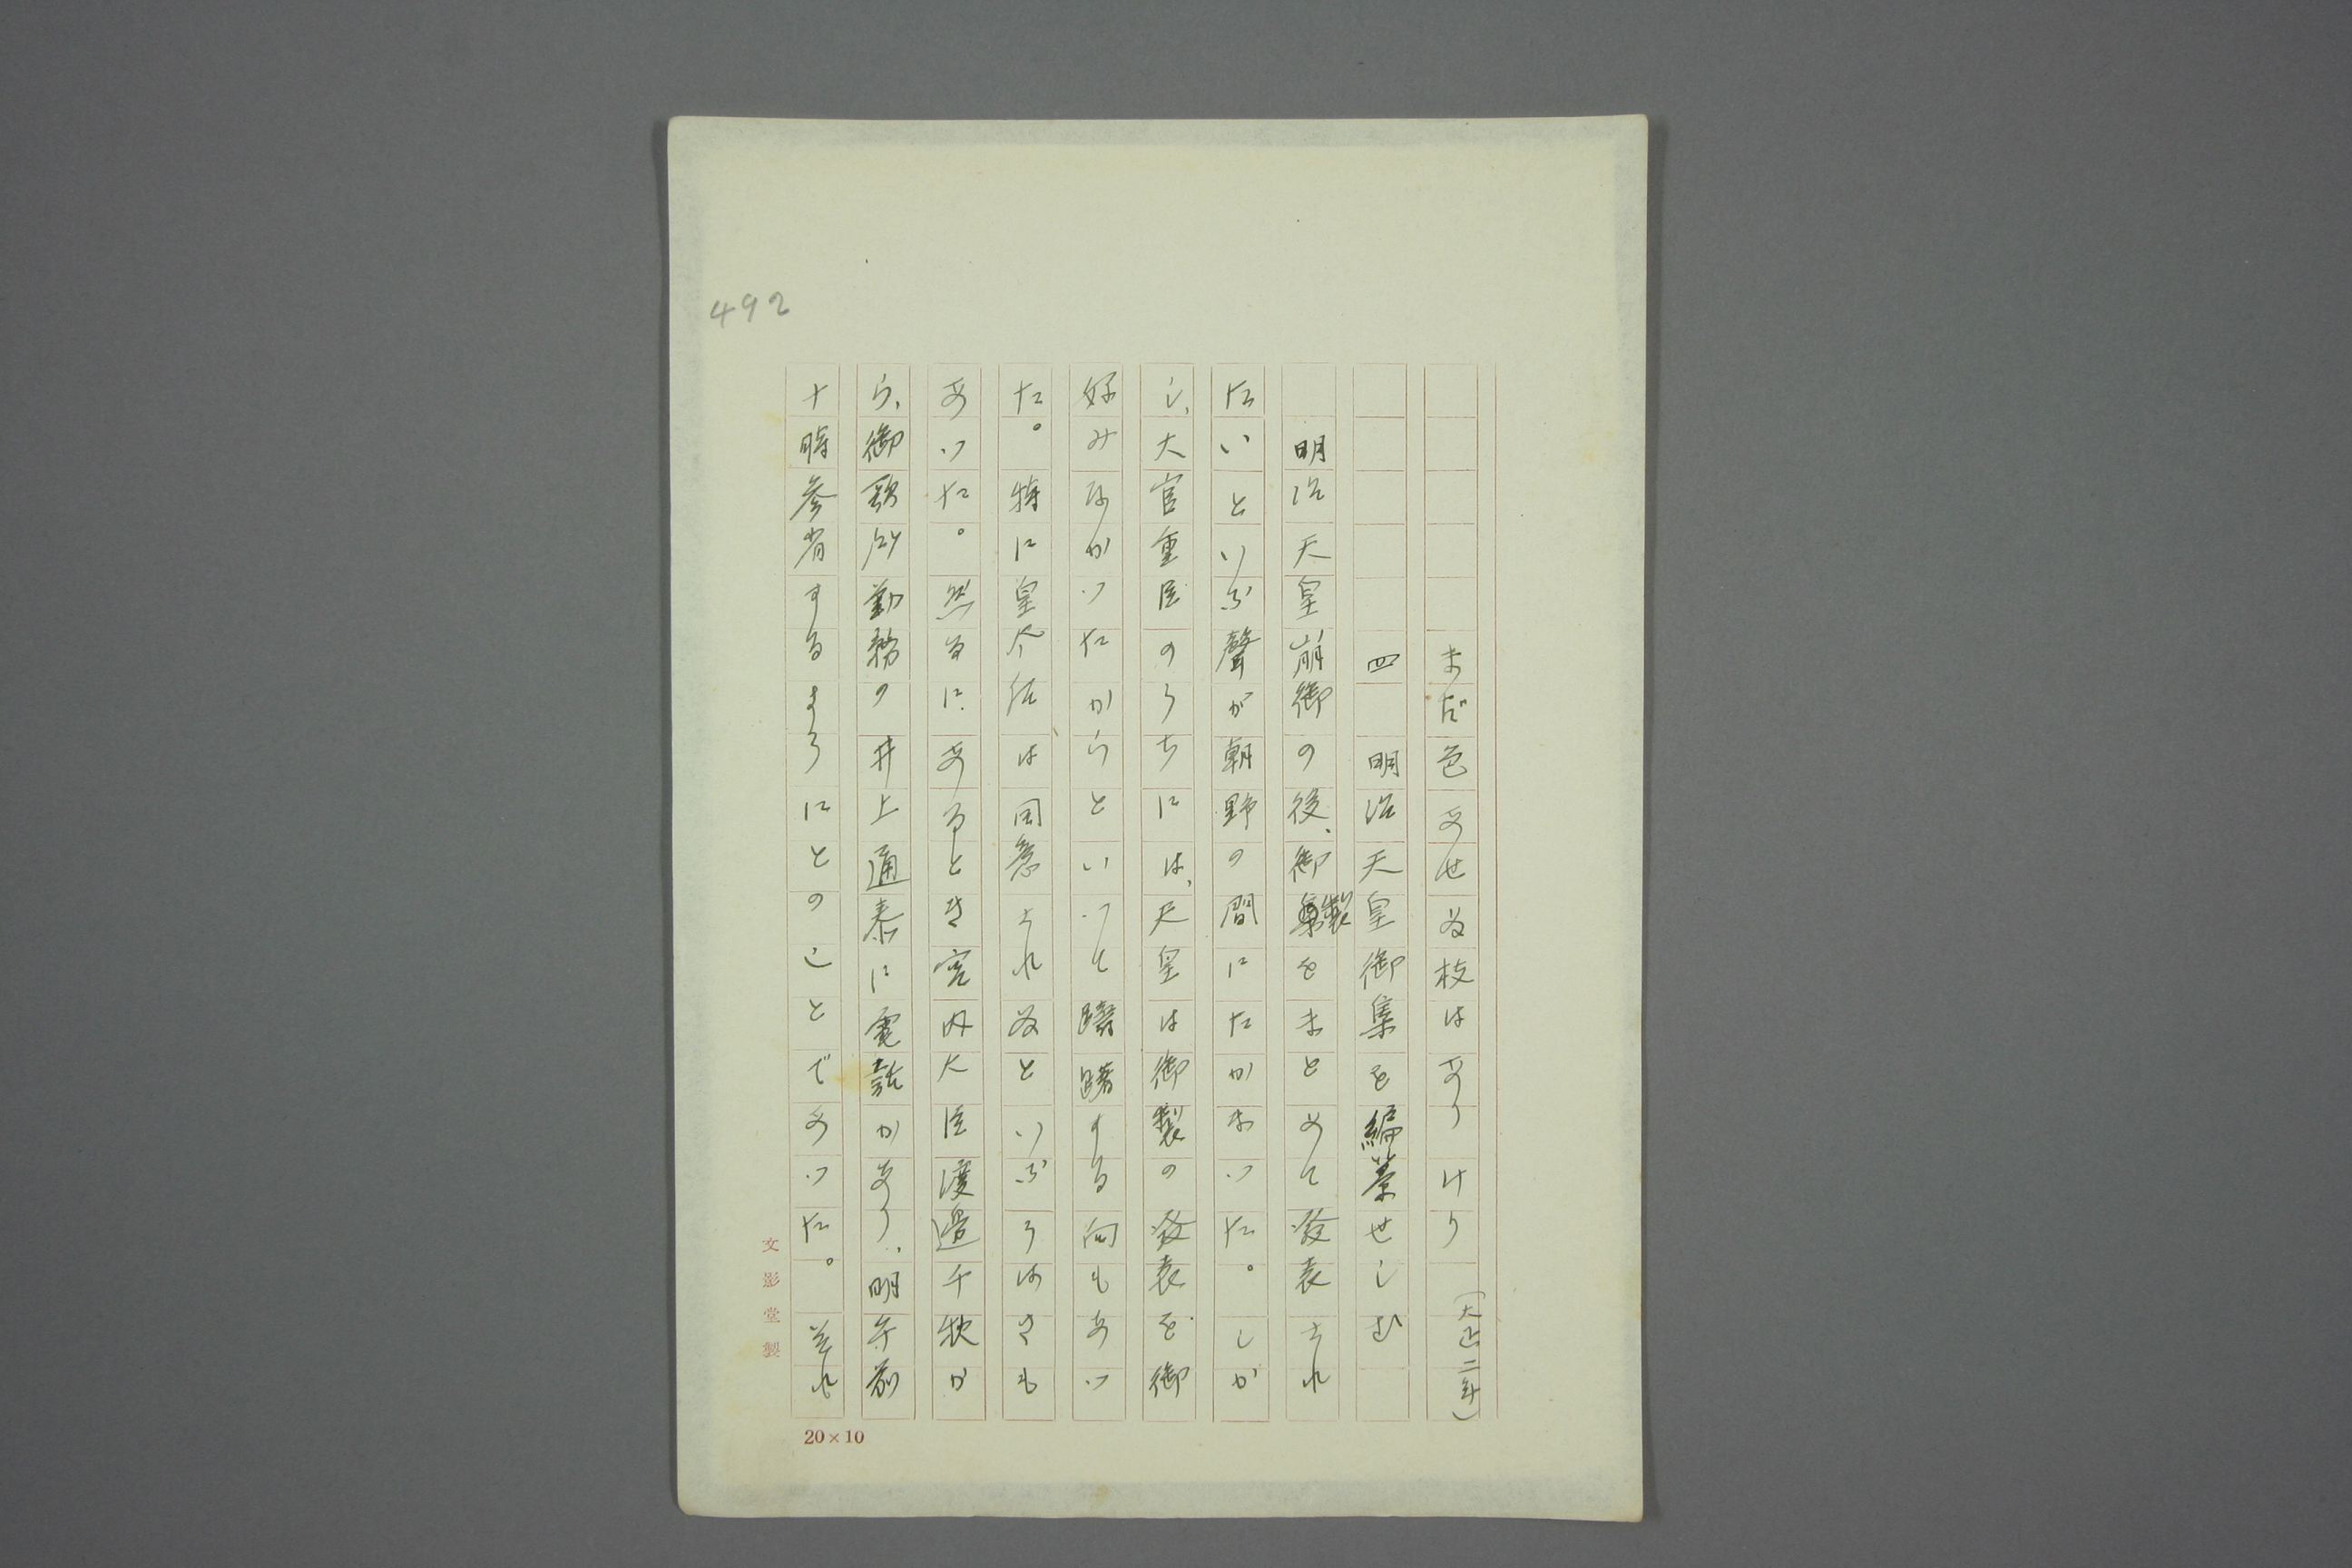 492
まだ色あせぬ枝はありけり(大正二年)
四 明治天皇御集を編纂せしむ
明治天皇崩御の後、御製をまとめて發表され
たいといふ聲が朝野の間にたかまつた。しか
し、大官重臣のうちには、天皇は御製の發表を御
好みなかつたからといつて躊躇する向もあつ
た。特に皇太后は同意されぬといふうはさも
あつた。然るに、あるとき宮内大臣渡邊千秋か
ら、御歌所勤務の井上通泰に電話があり、明午前
十時参省するようにとのことであつた。それ
文影堂製
20×10